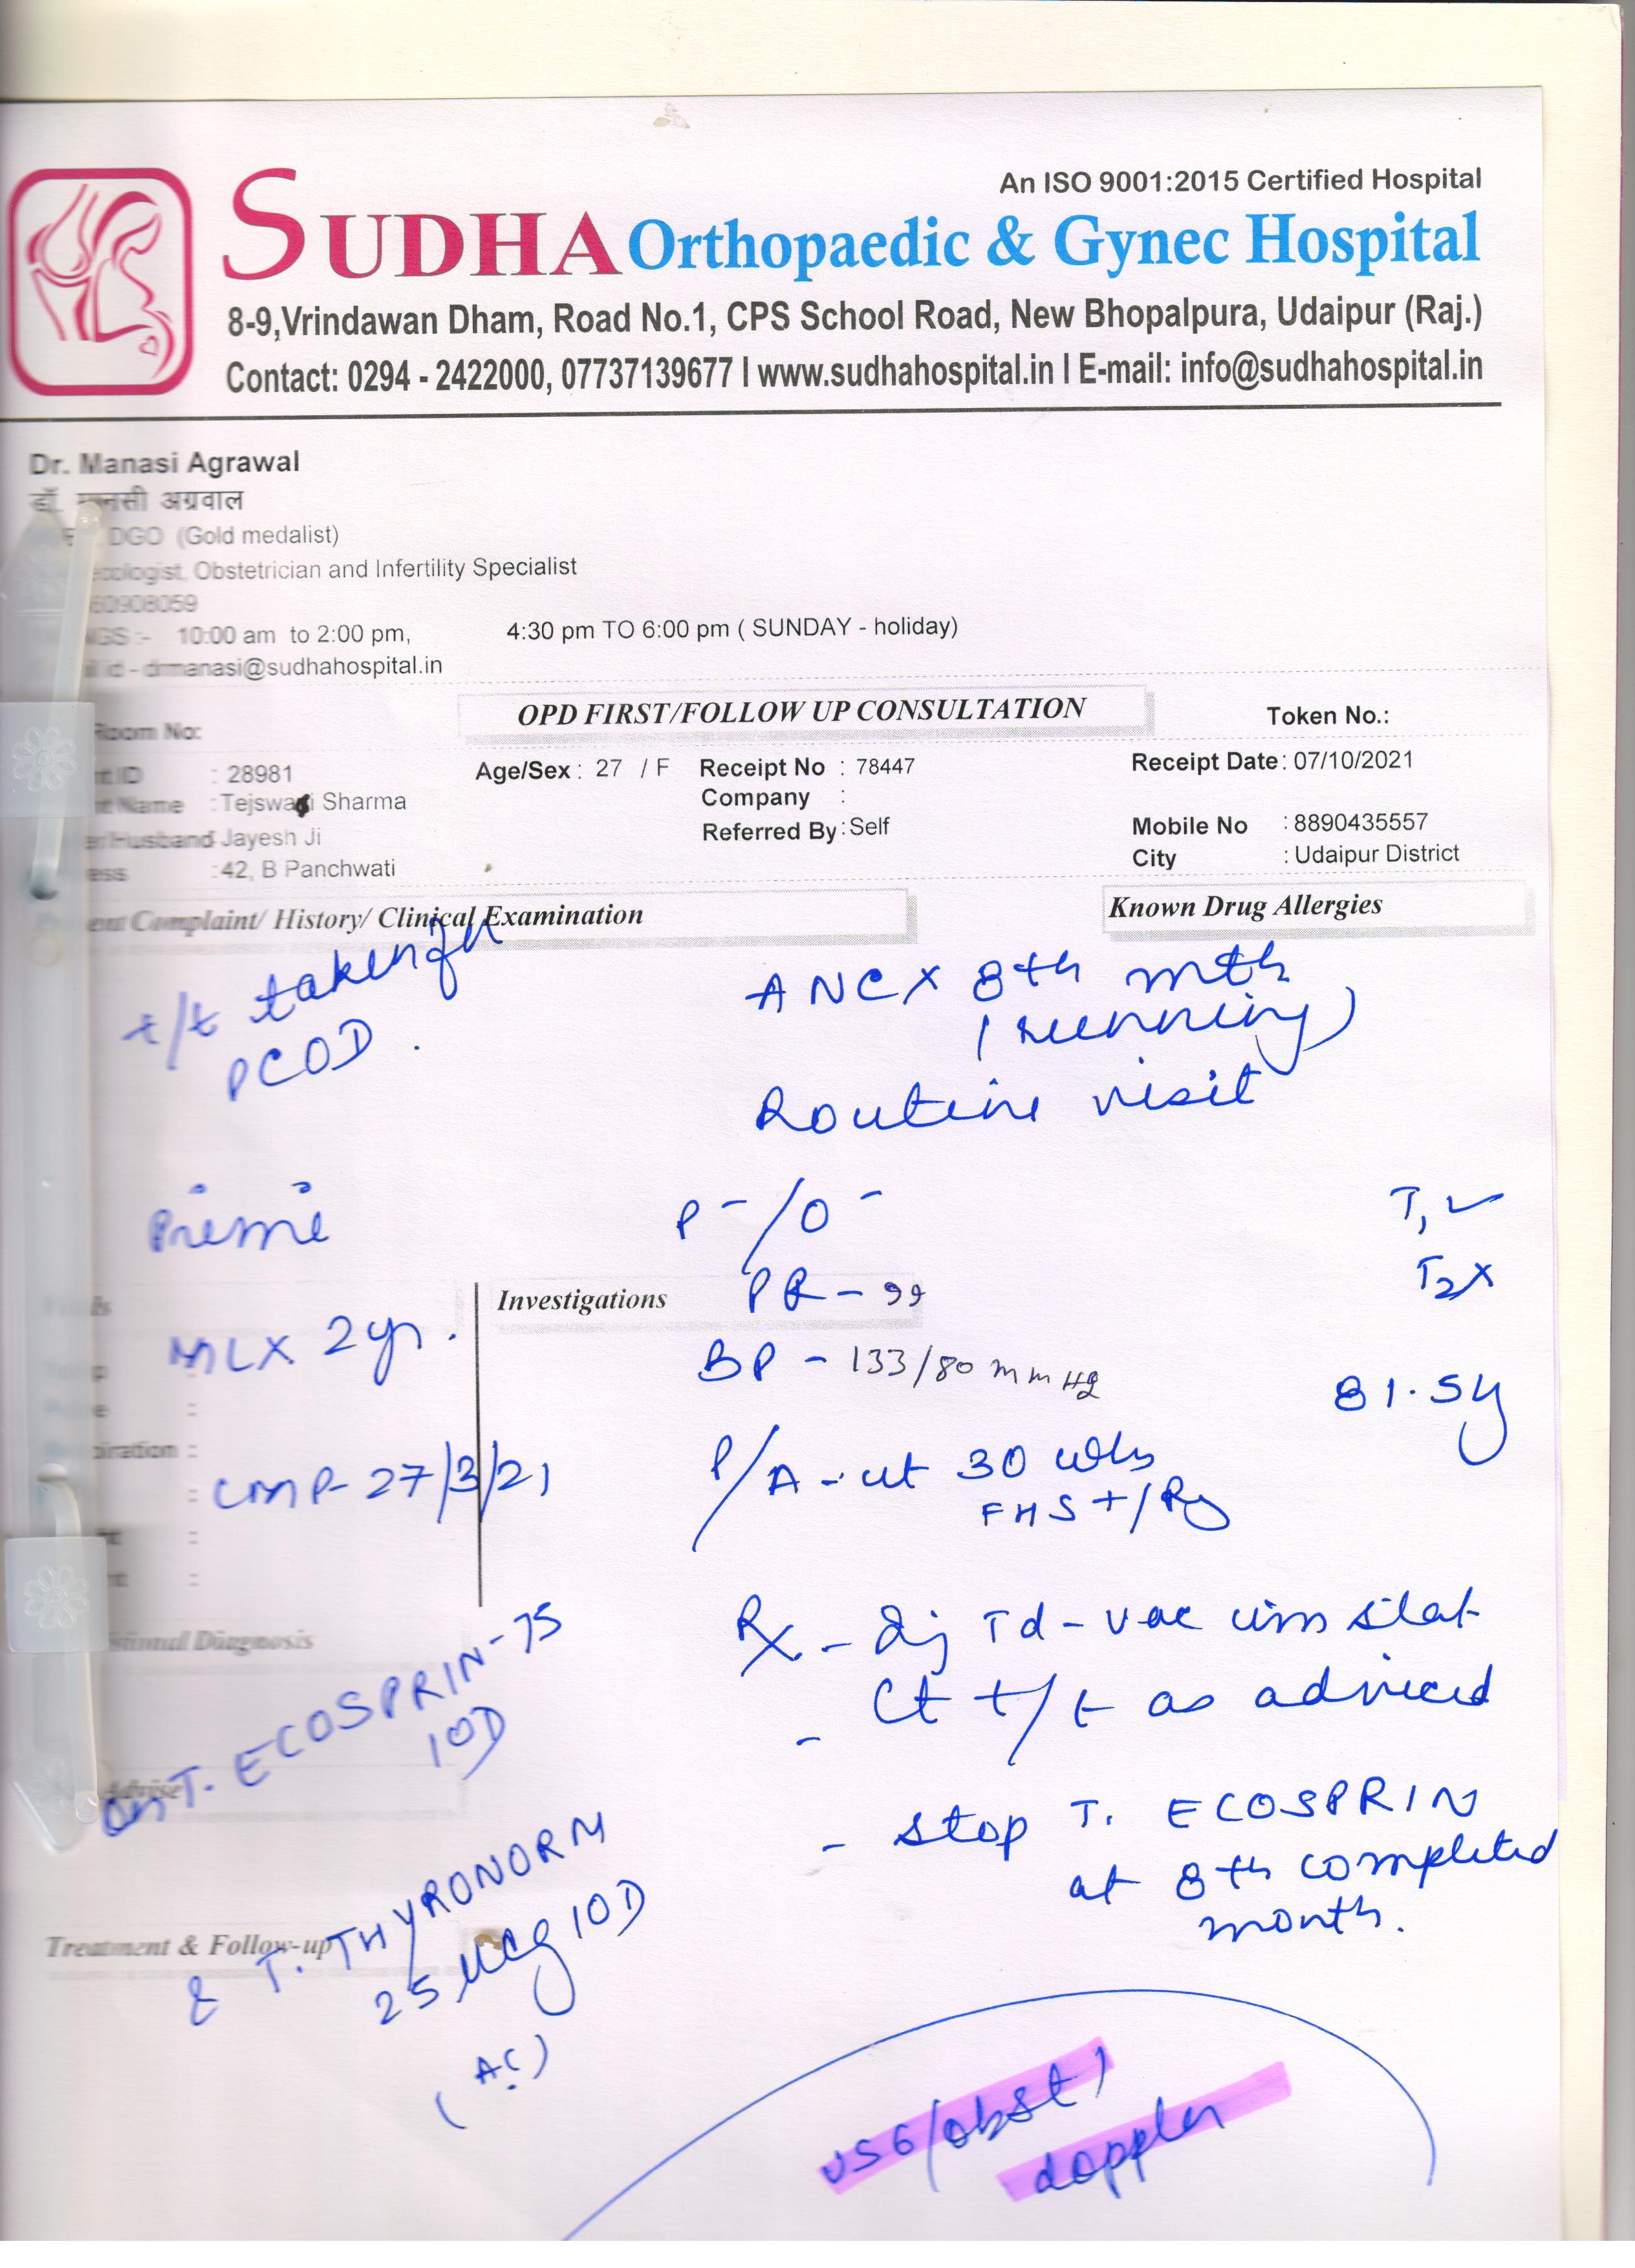 An ISO 9001:2015 Certified Hospital
SUDHA Orthopaedic & Gynec Hospital
8-9,Vrindawan Dham, Road No.1, CPS School Road, New Bhopalpura, Udaipur (Raj.)
Contact: 0294 - 2422000, 07737139677 I www.sudhahospital.in I E-mail: info@sudhahospital.in
Dr. Manasi Agrawal
डॉ. मानसी अग्रवाल
DGO (Gold medalist)
ecologist, Obstetrician and Infertility Specialist
60908059
NGS :- 10:00 am to 2:00 pm, 4:30 pm TO 6:00 pm ( SUNDAY - holiday)
id - drmanasi@sudhahospital.in
OPD FIRST/FOLLOW UP CONSULTATION
Token No.:
Room No:
t ID : 28981 Age/Sex : 27 / F Receipt No : 78447 Receipt Date : 07/10/2021
t Name : Tejswa i Sharma Company :
er/Husband Jayesh Ji Referred By : Self Mobile No : 8890435557
ess : 42, B Panchwati City : Udaipur District
ent Complaint/ History/ Clinical Examination
Known Drug Allergies
t/t taken for
PCOD.
ANC X 8th mth
(running)
Routine visit
Primi
P - / O -
T1 ✓
T2 X
Investigations
PR - 99
MLX 2yr.
BP - 133/80 mmHg
81.5 kg
piration :
LMP - 27/3/21
P/A - ut 30 wks
FHS +/Rg
sional Diagnosis
Rx - Inj Td - vac im stat
- Ct t/t as adviced
on T. ECOSPRIN-75
1OD
Advise
- stop T. ECOSPRIN
at 8th completed
month.
Treatment & Follow-up
& T. THYRONORM
25 mcg 1OD
(AC)
USG/obst)
doppler